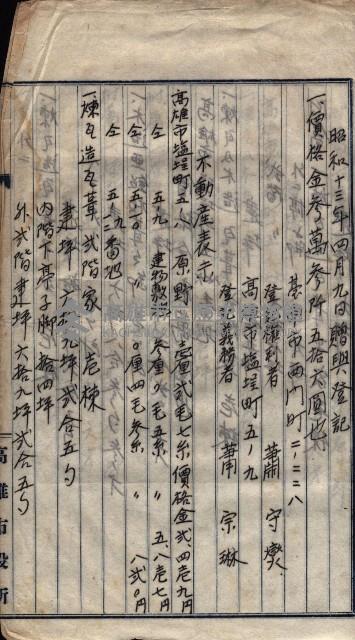 昭和十三年四月九日贈與登記
一、價格金參萬參阡五拾六圓也
臺南市西門町二ノ二二八
登記權利者 蕭守燦
高雄市塩埕町五ノ九
登記義務者 蕭宗琳
不動産表示
高雄市塩埕町五ノ八 原野 壱厘弐毛七糸 價格金弐、四壱九円
仝 五ノ九 建物敷地 參厘〇毛五糸 〃 五、八壱七円
仝 五ノ一〇 〃 〇厘四毛參糸 〃 八弐〇円
仝 五ノ九番地
一、煉瓦造瓦葺弐階家 壱棟
建坪 六拾九坪弐合五勺
内階下亭子脚 拾四坪
外弐階建坪 六拾九坪弐合五勺
高雄市役所